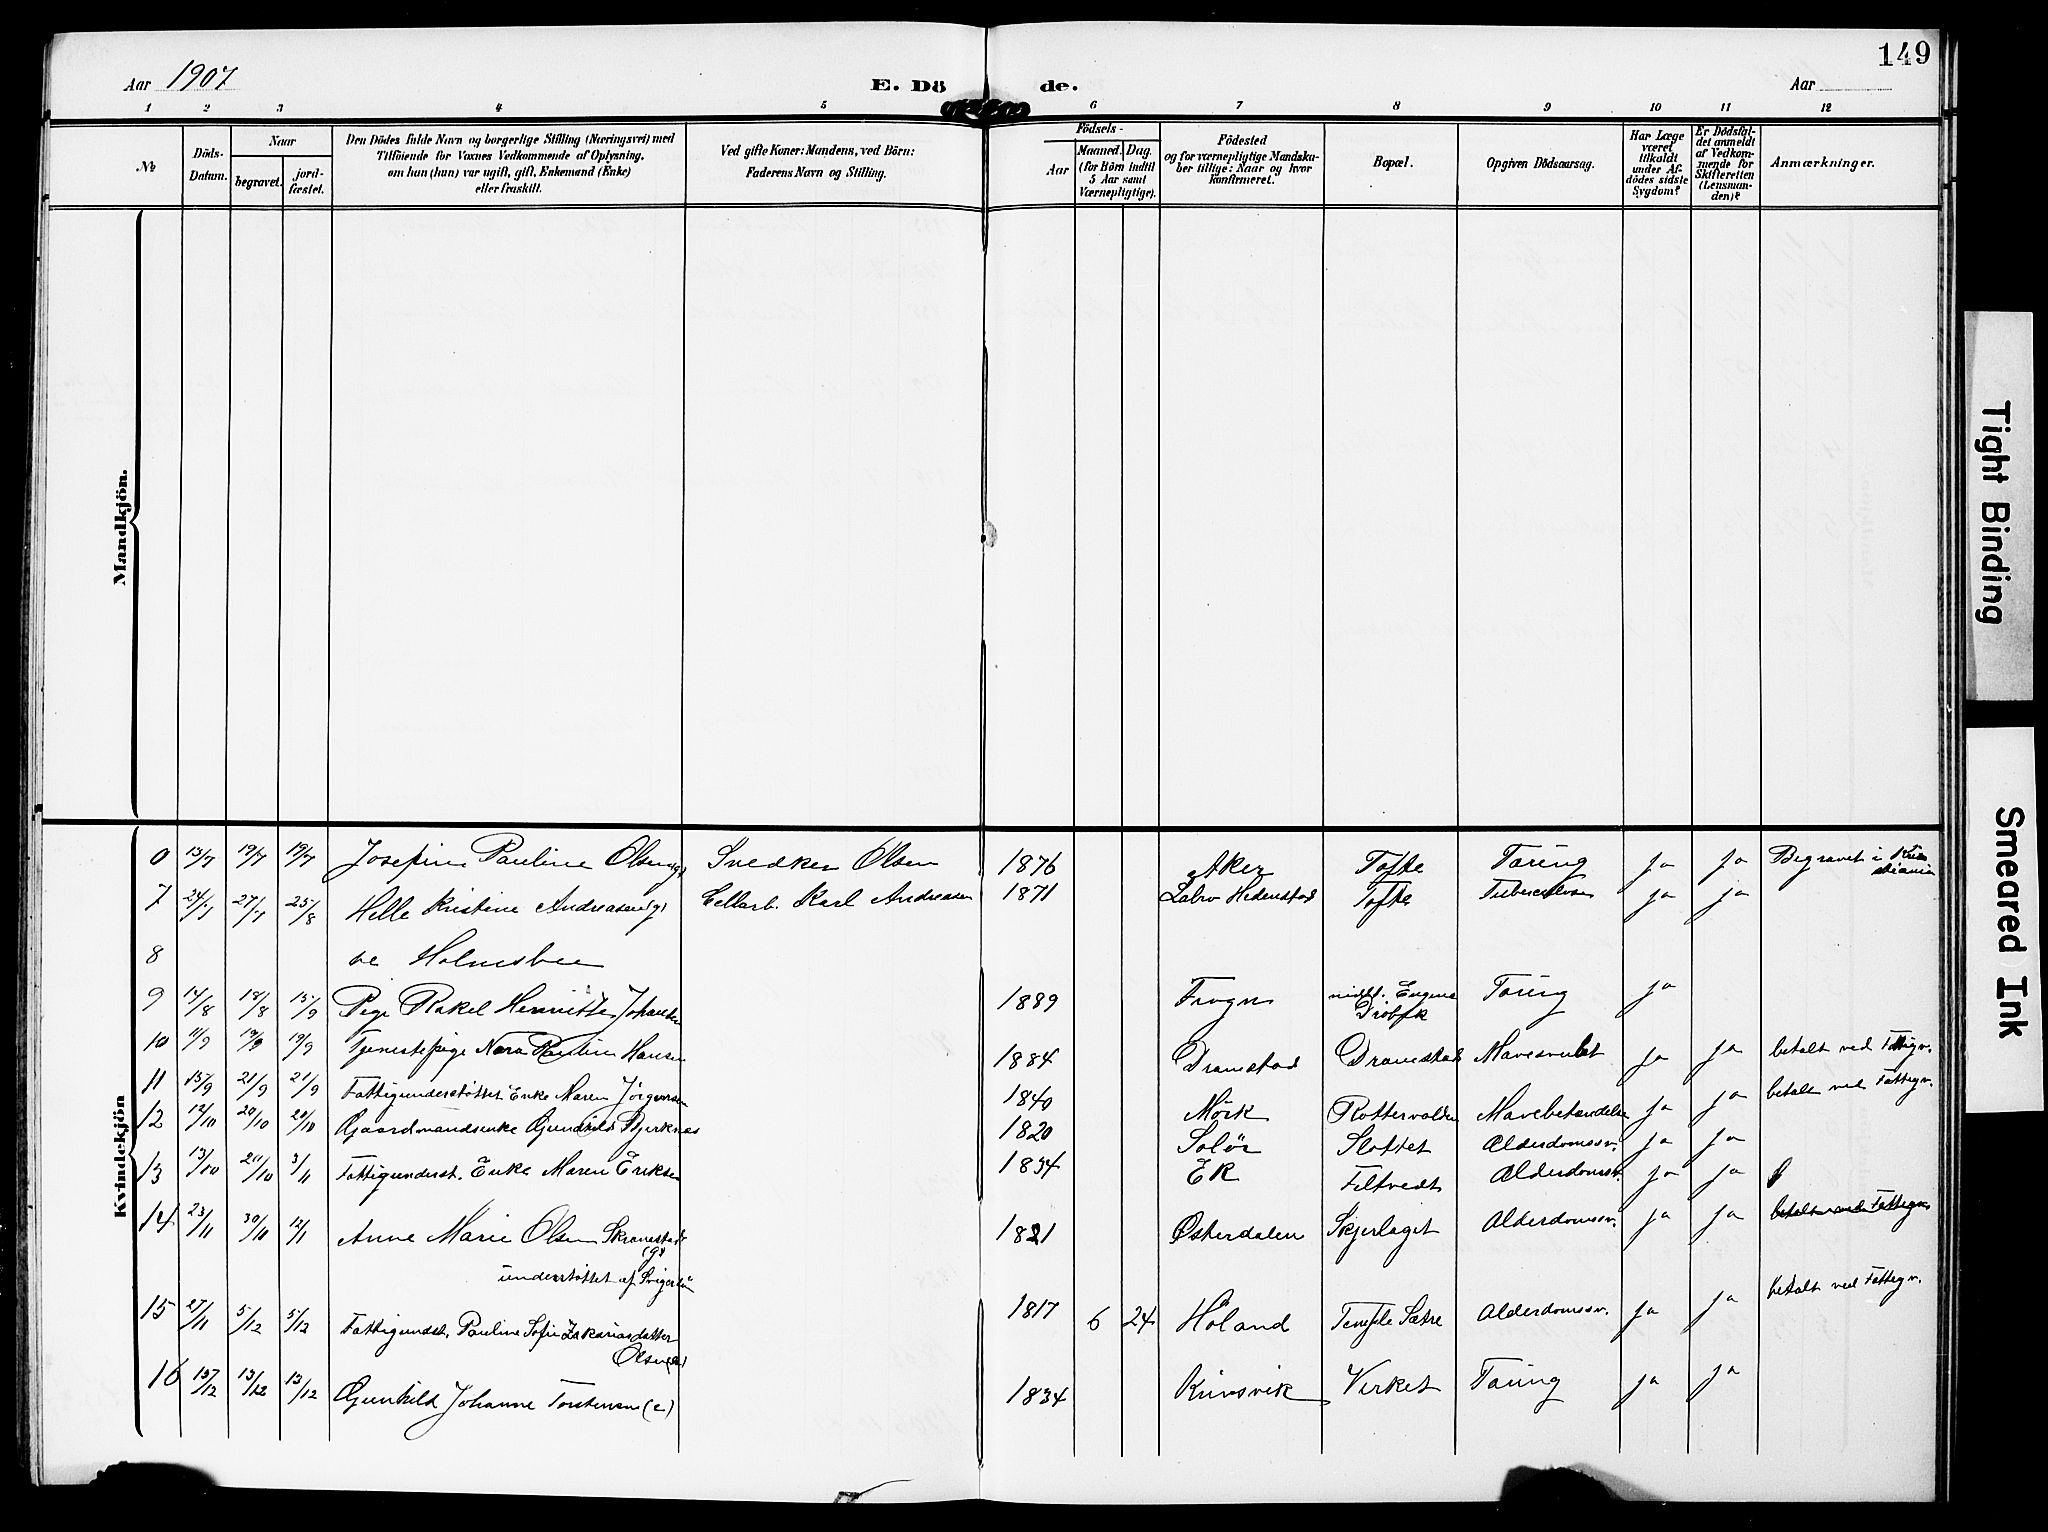 149
Aar 1907
E. Dö de.
Aar
1 2 3 4 5 6 7 8 9 10 11 12
No
Döds-Datum.
Naar
begravet.
jord-fæstet.
Den Dödes fulde Navn og borgerlige Stilling (Næringsvei) med
Tilföiende for Voxnes Vedkommende af Oplysning,
om han (hun) var ugift, gift, Enkemand (Enke)
eller fraskilt.
Ved gifte Koner: Mandens, ved Börn:
Faderens Navn og Stilling.
Födsels-
Aar
Maaned. Dag.
(for Börn indtil
5 Aar samt
Værnepligtige).
Födested
og for værnepligtige Mandska-
ber tillige: Naar og hvor
konfirmeret.
Bopæl.
Opgiven Dödsaarsag.
Har Læge
været
tilkaldt
under Af-
dödes sidste
Sygdom?
Er Dödsfal-
det anmeldt
af Vedkom-
mende for
Skifteretten
(Lensman-
den)?
Anmærkninger.
Mandkjön.
Kvindekjön
0 13/7 19/7 19/7 Josefine Pauline Olsen (g) Svedker Olsen 1876 Aker Tofte Tæring ja ja Begravet i Kristiania
7 24/7 27/7 25/8 Helle Kristine Andreasen (g) Cellarb. Karl Andreasen 1871 Labro Hedenstad Tofte Tuberculose ja ja
8 se Holmsbu
9 14/8 18/8 15/9 Pige Rakel Henriette Johansen 1889 Frogn midl. Engene Drøbak Tæring ja
10 11/9 19/9 19/9 Tjenestepige Nora Pauline Hansen 1884 Dramstad Dramstad Mavesvulst ja ja betalt ved Fattigv.
11 15/9 21/9 21/9 Fattigunderstøttet Enke Maren Jørgensen 1840 Mörk Rottervolden Mavebetændelse ja ja betalt ved Fattigv.
12 12/10 20/10 20/10 Gaardmandsenke Gunhild Bjerknes 1820 Solör Slottet Alderdomssv. ja ja
13 13/10 20/10 3/11 Fattigunderst. Enke Maren Eriksen 1834 EK Filtvedt Alderdomssv. ja ja
14 23/11 30/10 12/1 Anne Marie Olsen Skranestad (g) 1821 Østerdalen Skjerlaget Alderdomssv. ja ja betalt ved Fattigv.
understøttet af Svigersøn
15 27/11 5/12 5/12 Fattigundst. Pauline Sofie Zakariasdatter 1817 6 24 Höland Temple Sætre Alderdomssv. ja ja betalt ved Fattigv.
Olsen (e)
16 13/12 13/12 Gunhild Johanne Torstensen (e) 1834 Knivsvik Virket Tæring ja ja
Tight Binding
Smeared Ink